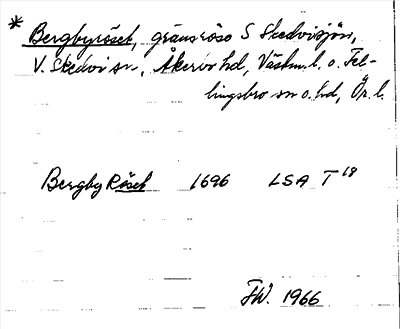 * Bergbyröset, gränsröse S Skedvisjön,
V. Skedvi sn., Åkerbo hd, Västm. l. o. Fel-
lingsbro sn o. hd, Ör. l.
Bergby Röset 1696 LSA T 18
FW. 1966